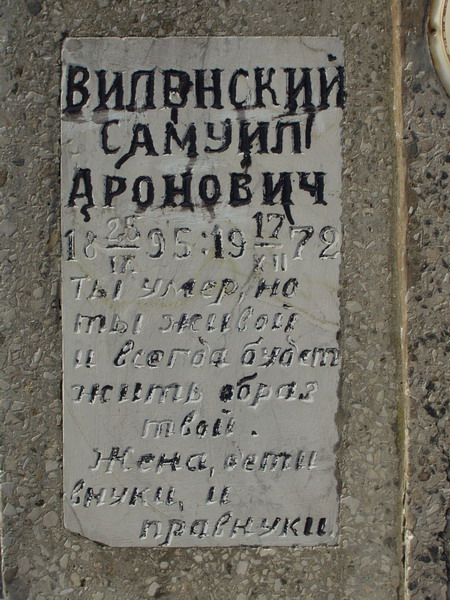 САМУИЛ
АРОНОВИЧ
18 25/IX 95 : 19 17/XII 72
ты умер, но
ты живой
и всегда будет
жить образ
твой.
Жена, дети
внуки, и
правнуки.